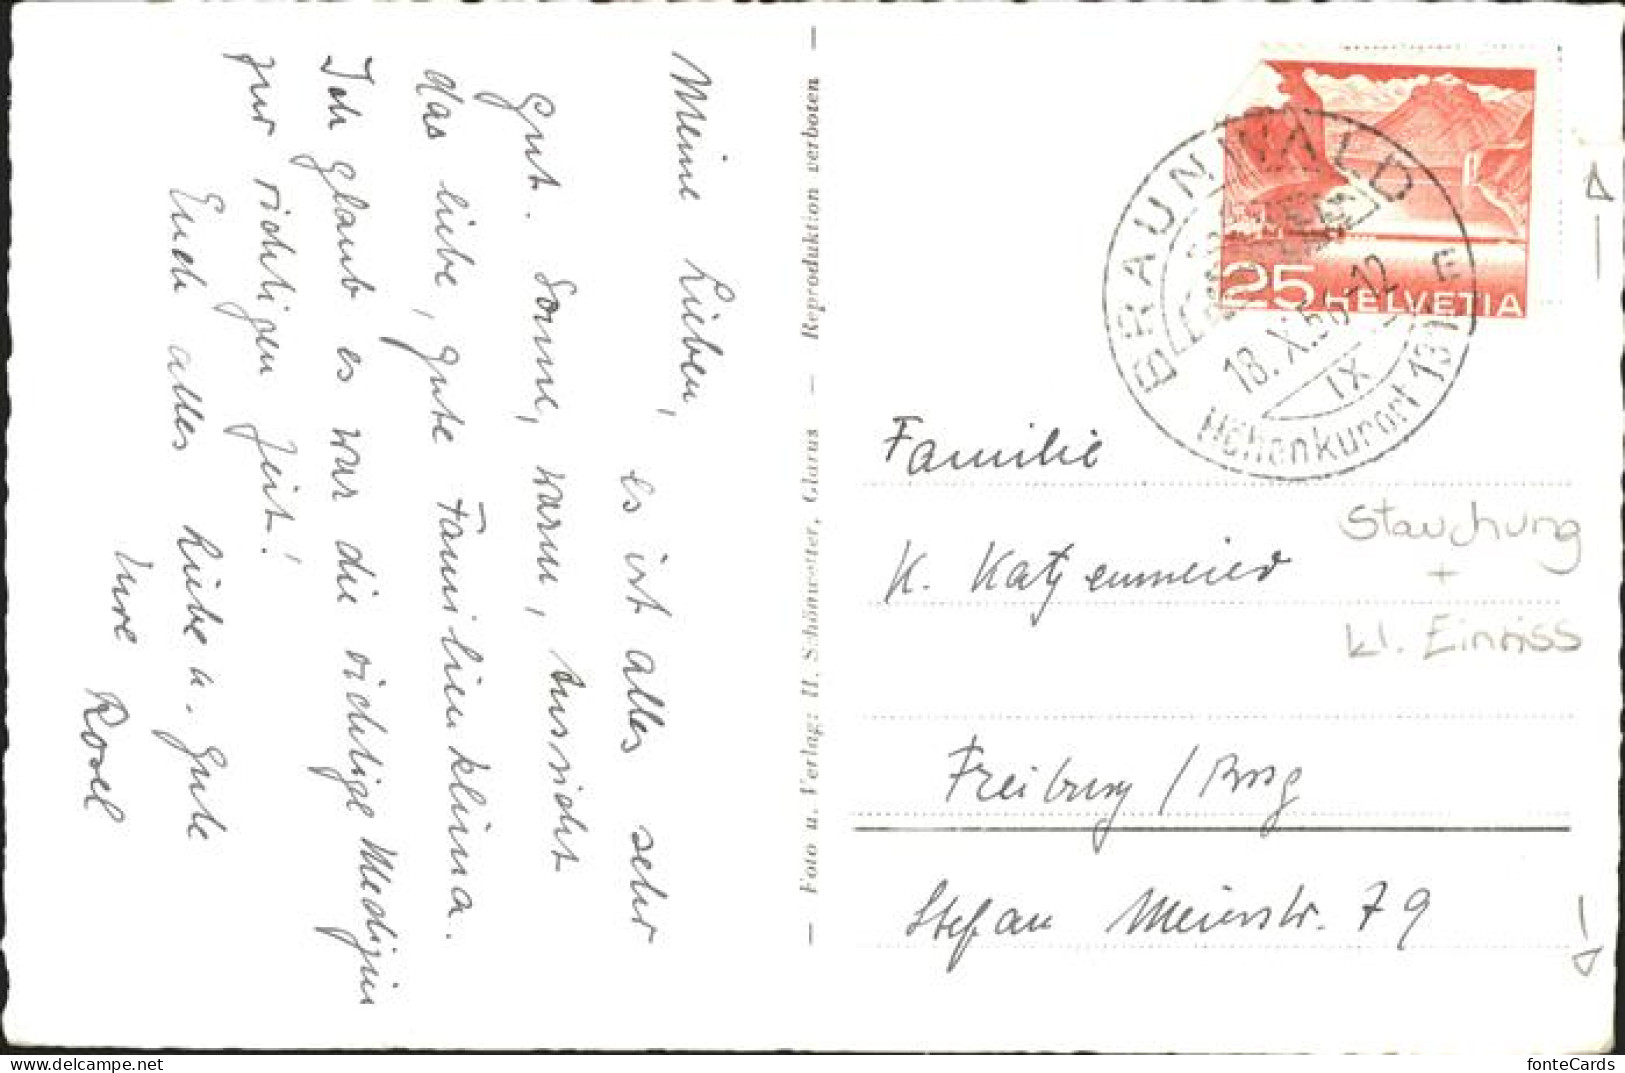 Meine Lieben,
es ist alles sehr
gut. Sonne, warm, Aussicht
das liebe, gute Familienklima.
Ich glaub es war die richtige Medizin
zur richtigen Zeit!
Euch alles Liebe u. Gute
Eure
Rosel
— Foto u. Verlag: H. Schönwetter, Glarus — Reproduktion verboten —
BRAUNWALD
18.X.5 -12
IX
E
Höhenkurort 13
25 HELVETIA
Familie
K. Katzenmeier
Stauchung
+
kl. Einriss
Freiburg / Brsg
Stefan Meierstr. 79
delcampe.net
fonteCards